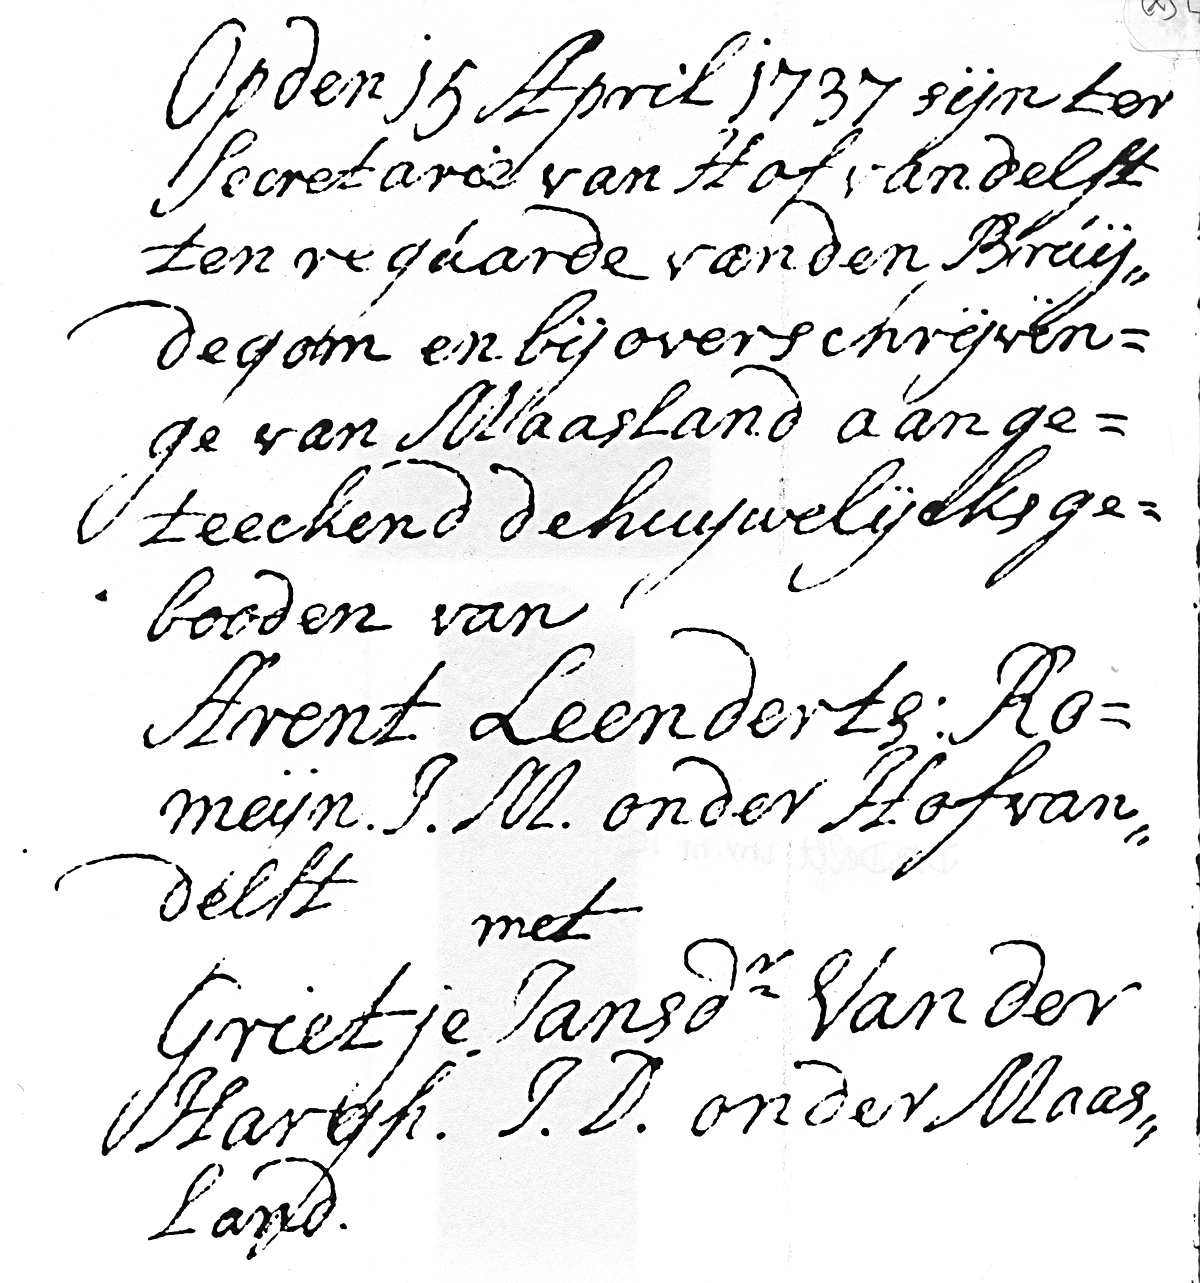 Op den 15 April 1737 sijn ter
Secretarie van Hof van delft
ten reguarde van den Bruij„
degom en bij overschrijvin=
ge van Maasland aange=
teeckend de huijwelijcks ge=
booden van
Arent Leenderts: Ro=
meijn. J. M. onder Hof van„
delft
met
Grietje Jansdr Van der
Hargh. J. D. onder Maas„
Land.